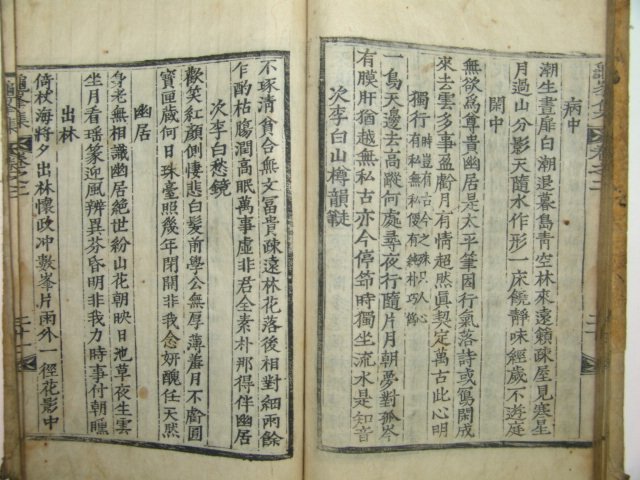 病中
潮生晝扉白潮退暮島靑空林來遠籟疎屋見寒星
月過山分影天隨水作形一床饒靜味經歲不遊庭
閑中
無欲爲尊貴幽居是太平筆因行氣落詩或寫閑成
來去雲多事盈虧月有情超然眞契定萬古此心明
獨行 時豈有古今之殊只人心有無私無私便有純朴巧飾
一鳥天邊去高蹤何處尋夜行隨片月朝夢對孤岑
有膜肝猶越無私古亦今停筇時獨坐流水是知音
次李白山樽韻
不琢清貧合無文冨貴疎遠林花落後相對細雨餘
乍酌枯腸潤高眠萬事虛非君全素朴那得伴幽居
次李白愁鏡
歡笑紅顏側悽悲白髮前學公無厚薄羞月不虧圓
寶匣藏何日珠臺照幾年閉開非我念妍醜任天然
幽居
身老無相識幽居絶世紛山花朝映日池草夜生雲
坐月看瑤篆迎風辨異芬昏明非我力時事付朝曛
出林
倚杖海將夕出林懷政冲數峯片雨外一徑花影中
龜峯集 卷之二